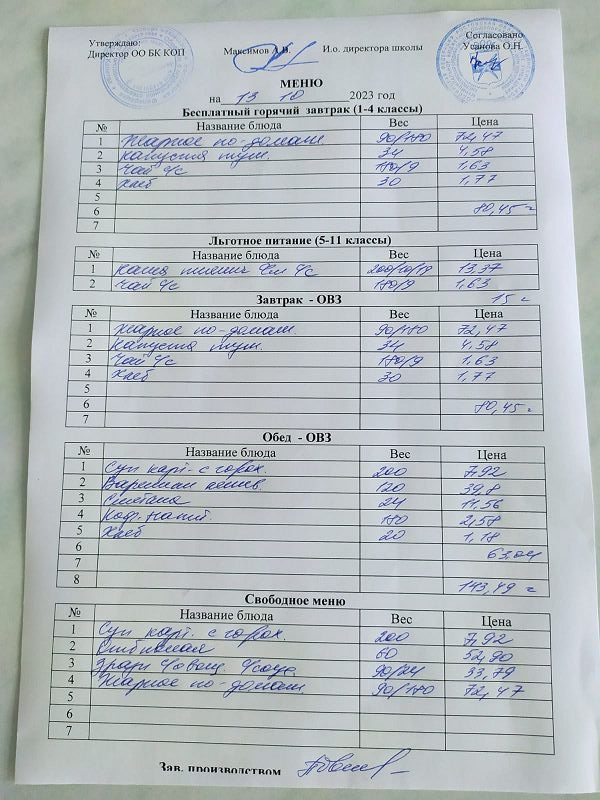 Утверждаю:
Директор ОО БК КОП
Максимов А.В.
И.о. директора школы
Согласовано
Усанова О.Н.
МЕНЮ
на 13 10 2023 год
Бесплатный горячий завтрак (1-4 классы)
№ Название блюда Вес Цена
1 Жаркое по-домаш. 90/180 72,47
2 Капуста туш. 34 4,58
3 Чай с/с 180/9 1,63
4 Хлеб 30 1,77
5
6 80,45
7
Льготное питание (5-11 классы)
№ Название блюда Вес Цена
1 Каша пшенич 13,37
2 Чай с/с 180/9 1,63
15
Завтрак - ОВЗ
№ Название блюда Вес Цена
1 Жаркое по-домаш. 90/180 72,47
2 Капуста туш. 34 4,58
3 Чай с/с 180/9 1,63
4 Хлеб 30 1,77
5
6 80,45
7
Обед - ОВЗ
№ Название блюда Вес Цена
1 Суп карт. с горох. 200 7,92
2 Вареники 120 39,8
3 Сметана 24 11,56
4 Коф. напит. 180 2,58
5 Хлеб 20 1,18
6 63,04
7
8 143,49
Свободное меню
№ Название блюда Вес Цена
1 Суп карт. с горох. 200 7,92
2 60 52,90
3 90/24 53,79
4 Жаркое по-домаш 90/180 72,47
5
6
7
Зав. производством